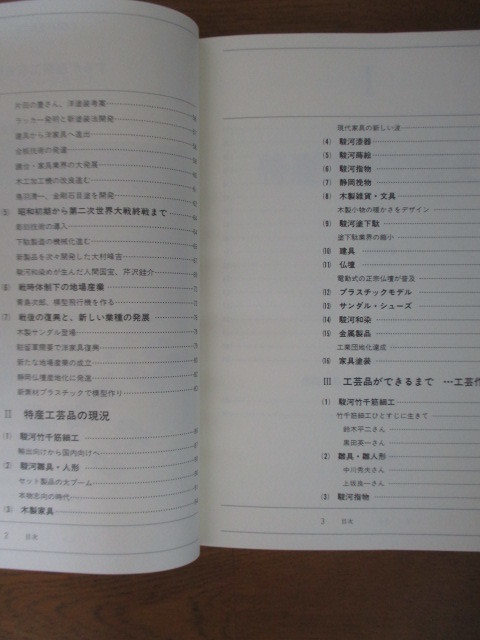 大谷の畳さん、洋塗装考案
ラッカー発明と新塗装法開発
建具から洋家具へ進出
合板技術の発達
鏡台・家具業界の大発展
木工加工機の改良進む
金剛石目塗を開発
(5) 昭和初期から第二次世界大戦終戦まで
彫刻技術の導入
下駄製造の機械化進む
新製品を次々開発した大村峰吉
駿河和染めが生んだ人間国宝、芹沢銈介
(6) 戦時体制下の地場産業
青島次郎、模型飛行機を作る
(7) 戦後の復興と、新しい業種の発展
木製サンダル登場
駐留軍用家で洋家具復興
新たな地場産業の成立
静岡仏壇産地化に発達
新素材プラスチックで模型作り
II 特産工芸品の現況
(1) 駿河竹千筋細工
輸出向けから国内向けへ
(2) 駿河雛具・人形
セット製品の大ブーム
本物志向の時代
(3) 木製家具
2 目次
現代家具の新しい波
(4) 駿河漆器
(5) 駿河蒔絵
(6) 駿河指物
(7) 静岡挽物
(8) 木製雑貨・文具
木製小物の暖かさをデザイン
(9) 駿河塗下駄
塗下駄業界の縮小
(10) 建具
(11) 仏壇
電動式の正宗仏壇が普及
(12) プラスチックモデル
(13) サンダル・シューズ
(14) 駿河和染
(15) 金属製品
工業団地化達成
(16) 家具塗装
III 工芸品ができるまで …工芸作
(1) 駿河竹千筋細工
竹千筋細工ひとすじに生きて
鈴木平二さん
黒田英一さん
(2) 雛具・雛人形
中川秀夫さん
上坂良一さん
(3) 駿河指物
3 目次